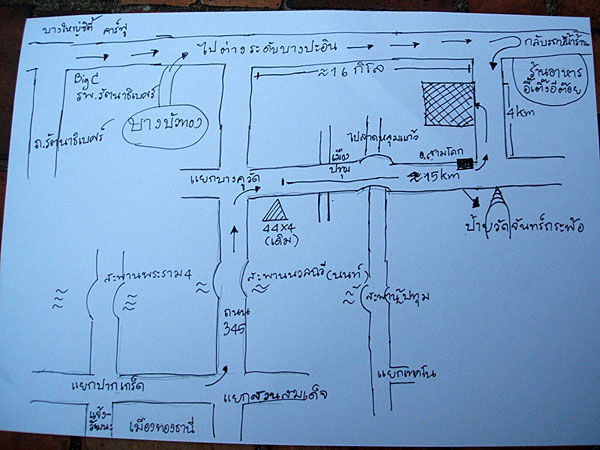 บางใหญ่ซิตี้ คาร์ฟู
ไปต่างระดับบางปะอิน
กลับรถหน้าร้าน
Big C
รพ. รัตนาธิเบศร์
ถ.รัตนาธิเบศร์
บางบัวทอง
≈ 16 กิโล
ร้านอาหาร
4 km
ไปลาดหลุมแก้ว
อ.สามโคก
เมือง
ปทุม
แยกบางคูวัด
≈ 15 km
44x4
(เดิม)
ป้ายวัดจันทร์กระพ้อ
สะพานพระราม 4
สะพานนวลฉวี (นนท์)
สะพานปทุม
ถนน
345
แยกปากเกร็ด
แยกสวนสมเด็จ
แยกเทคโน
แจ้ง-
วัฒนะ
เมืองทองธานี